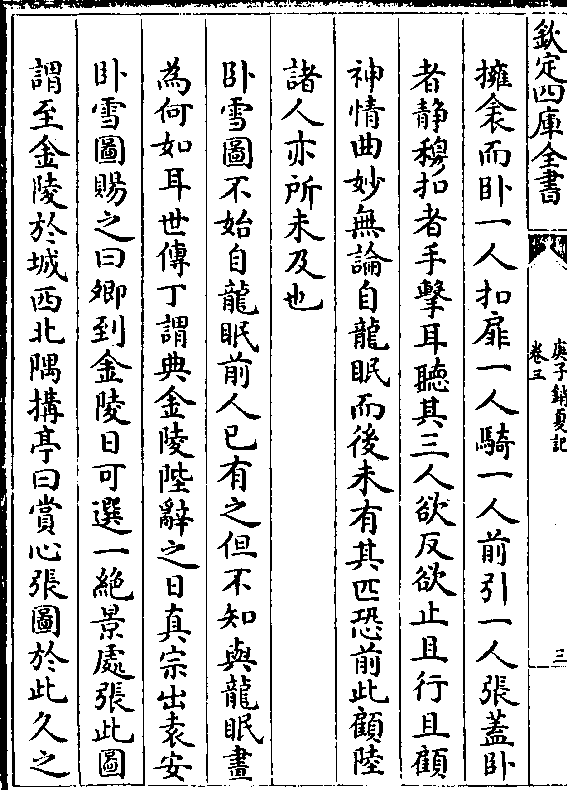 欽定四庫全書
庚子銷夏記
卷三
三
擁衾而卧一人扣扉一人騎一人前引一人張蓋卧
者静穆扣者手擊耳聽其三人欲反欲止且行且顧
神情曲妙無論自龍眠而後未有其匹恐前此顧陸
諸人亦所未及也
卧雪圖不始自龍眠前人已有之但不知與龍眠畫
為何如耳世傳丁謂典金陵陛辭之日真宗出袁安
卧雪圖賜之曰卿到金陵日可選一絶景處張此圖
謂至金陵於城西北隅搆亭曰賞心張圖於此久之